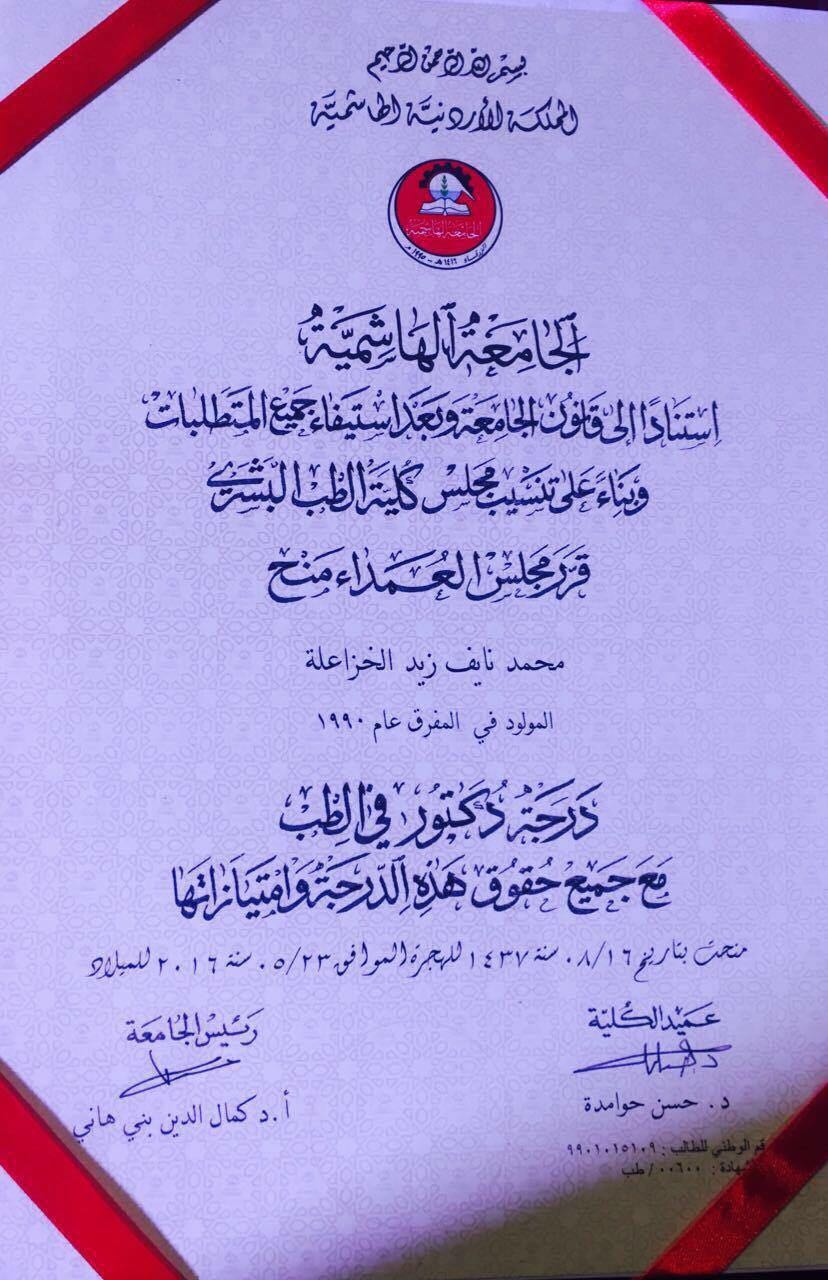 بسم الله الرحمن الرحيم
المملكة الأردنية الهاشمية
الجامعة الهاشمية
الزرقاء ١٤١٦هـ - ١٩٩٥م
الجَامعَة الهَاشِميَّة
استنادًا إلى قانون الجامعة وبعد استيفاء جميع المتطلبات
وبناءً على تنسيب مجلس كلية الطب البشري
قرر مجلس العمداء منح
محمد نايف زيد الخزاعلة
المولود في المفرق عام ١٩٩٠
درجة دكتور في الطب
مع جميع حقوق هذه الدرجة وامتيازاتها
منحت بتاريخ ٠٨/١٦ سنة ١٤٣٧ للهجرة الموافق ٠٥/٢٣ سنة ٢٠١٦ للميلاد
عميد الكلية
رئيس الجامعة
د. حسن حوامدة
أ.د كمال الدين بني هاني
قم الوطني للطالب : ٩٩٠١٠١٥١٠٩
شهادة : ٠٠٦٠٠ / طب